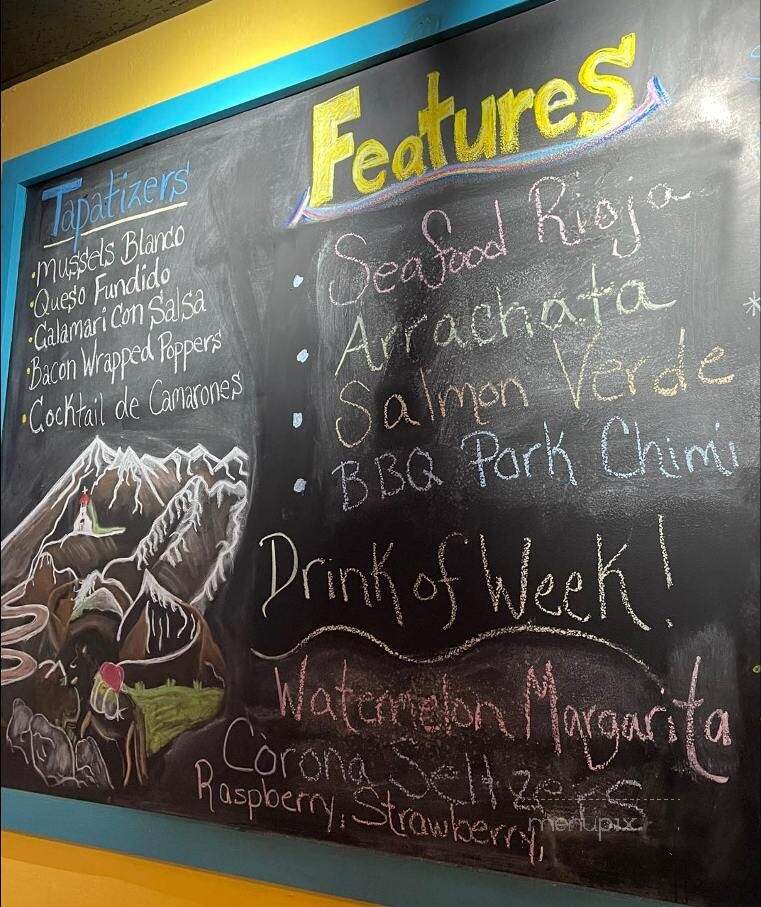 Tapatizers
· Mussels Blanco
· Queso Fundido
· Calamari Con Salsa
· Bacon Wrapped Poppers
· Cocktail de Camarones
Features
· Seafood Rioja
· Arrachata
· Salmon Verde
· BBQ Pork Chimi
Drink of Week!
Watermelon Margarita
Corona Seltzers
Raspberry, Strawberry,
menupix